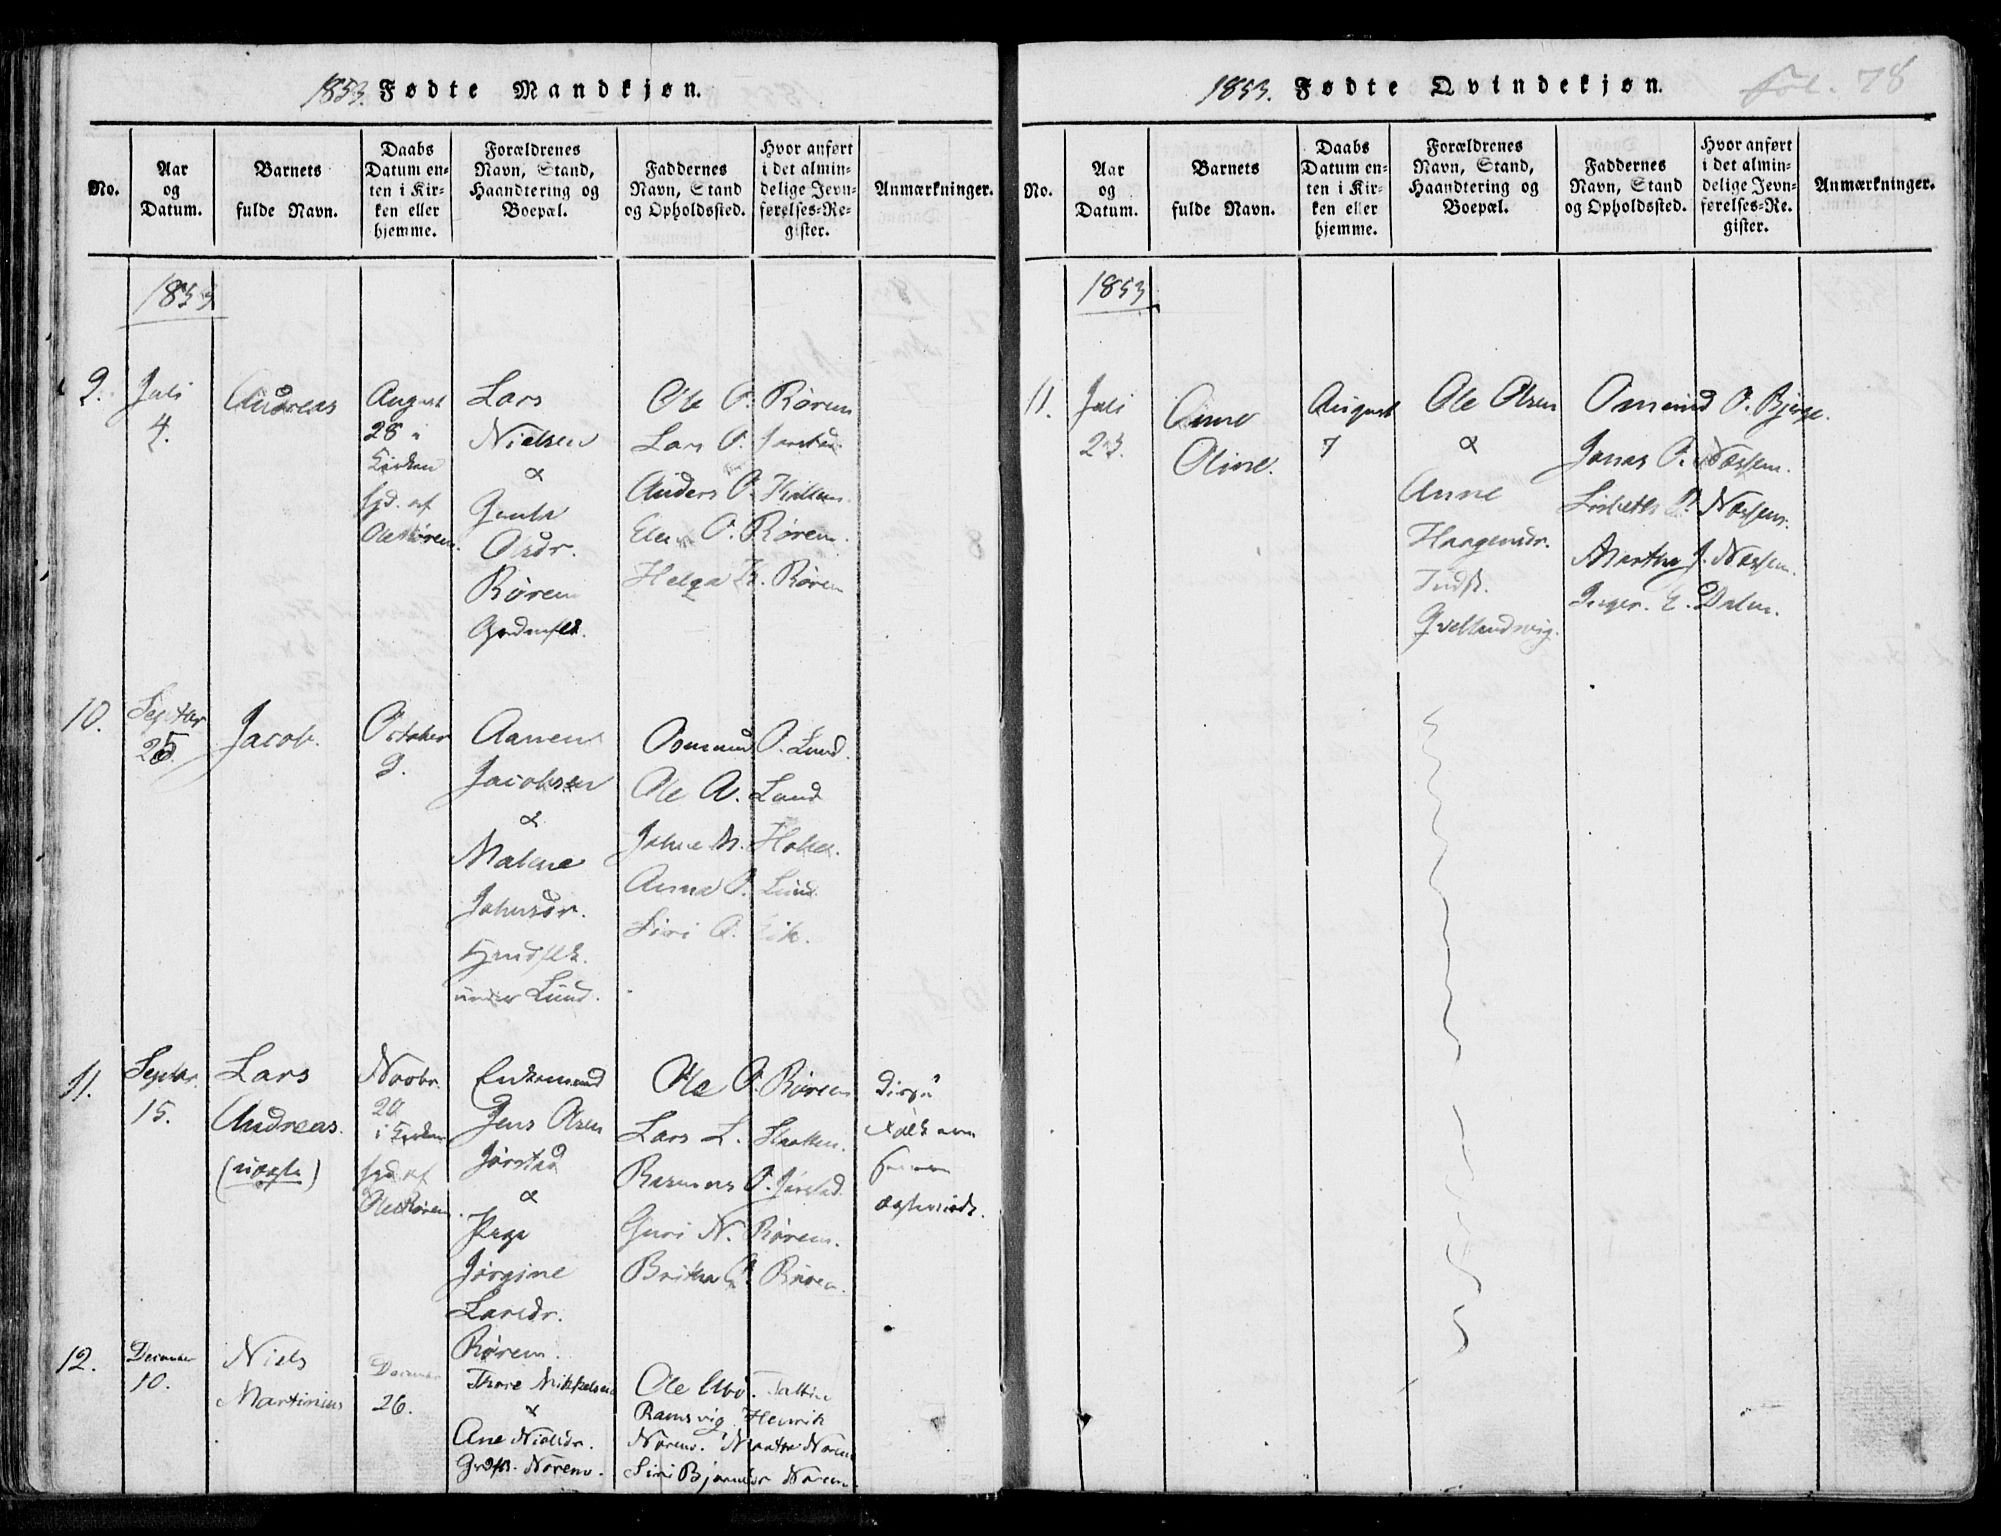 1853. Fødte Mandkjøn.
No.
Aar
og
Datum.
Barnets
fulde Navn.
Daabs
Datum en-
ten i Kir-
ken eller
hjemme.
Forældrenes
Navn, Stand,
Haandtering og
Boepæl.
Faddernes
Navn, Stand
og Opholdssted.
Hvor anført
i det almin-
delige Jevn-
førelses-Re-
gister.
Anmærkninger.
1853
9.
Juli
4.
Andreas
August
28 i
Kirken
hjd. af
Ole Røren.
Lars
Nielsen
&
Olsdr.
Røren
Ole O. Røren
Lars O. Jørstad
Anders O.
O. Røren.
Helga Th. Røren
10.
Septbr
25
Jacob.
October
9.
Aanen
Jacobsen
&
Malene
Johnsdr.
under Lund.
Osmund O. Lund.
Ole A. Lund
John M.
Anna O. Lund
Siri O. Eik.
11.
Septbr.
15.
Lars
Andreas.
(uægte)
Novbr.
20
i Kirken
hjd. af
Ole Røren.
Enkemand
Jens Olsen
Jørstad
&
Pige
Jørgine
Larsdr.
Røren.
Ole O. Røren
Lars L.
Rasmus O. Jørstad.
Guri N. Røren.
Britha O. Røren.
12.
December
10.
Niels
Martinius
December
26.
Thore Mikkelsen
&
Ane Nielsdr.
Nøren.
Ole
Ramsvig. Henrik
Nøren. Martha Nøren
Siri Bjørnsdr Nøren.
1853. Fødte Qvindekjøn.
fol. 78
No.
Aar
og
Datum.
Barnets
fulde Navn.
Daabs
Datum en-
ten i Kir-
ken eller
hjemme.
Forældrenes
Navn, Stand,
Haandtering og
Boepæl.
Faddernes
Navn, Stand
og Opholdssted.
Hvor anført
i det almin-
delige Jevn-
førelses-Re-
gister.
Anmærkninger.
1853
11.
Juli
23.
Anne
Oline.
August
7
Ole Olsen
&
Anne
Haagensdr.
Indst.
Omund O. Bjerge.
Jonas O. Næssen.
Lisbeth Næssen.
Martha J. Næssen.
Inger. E. Dalen.